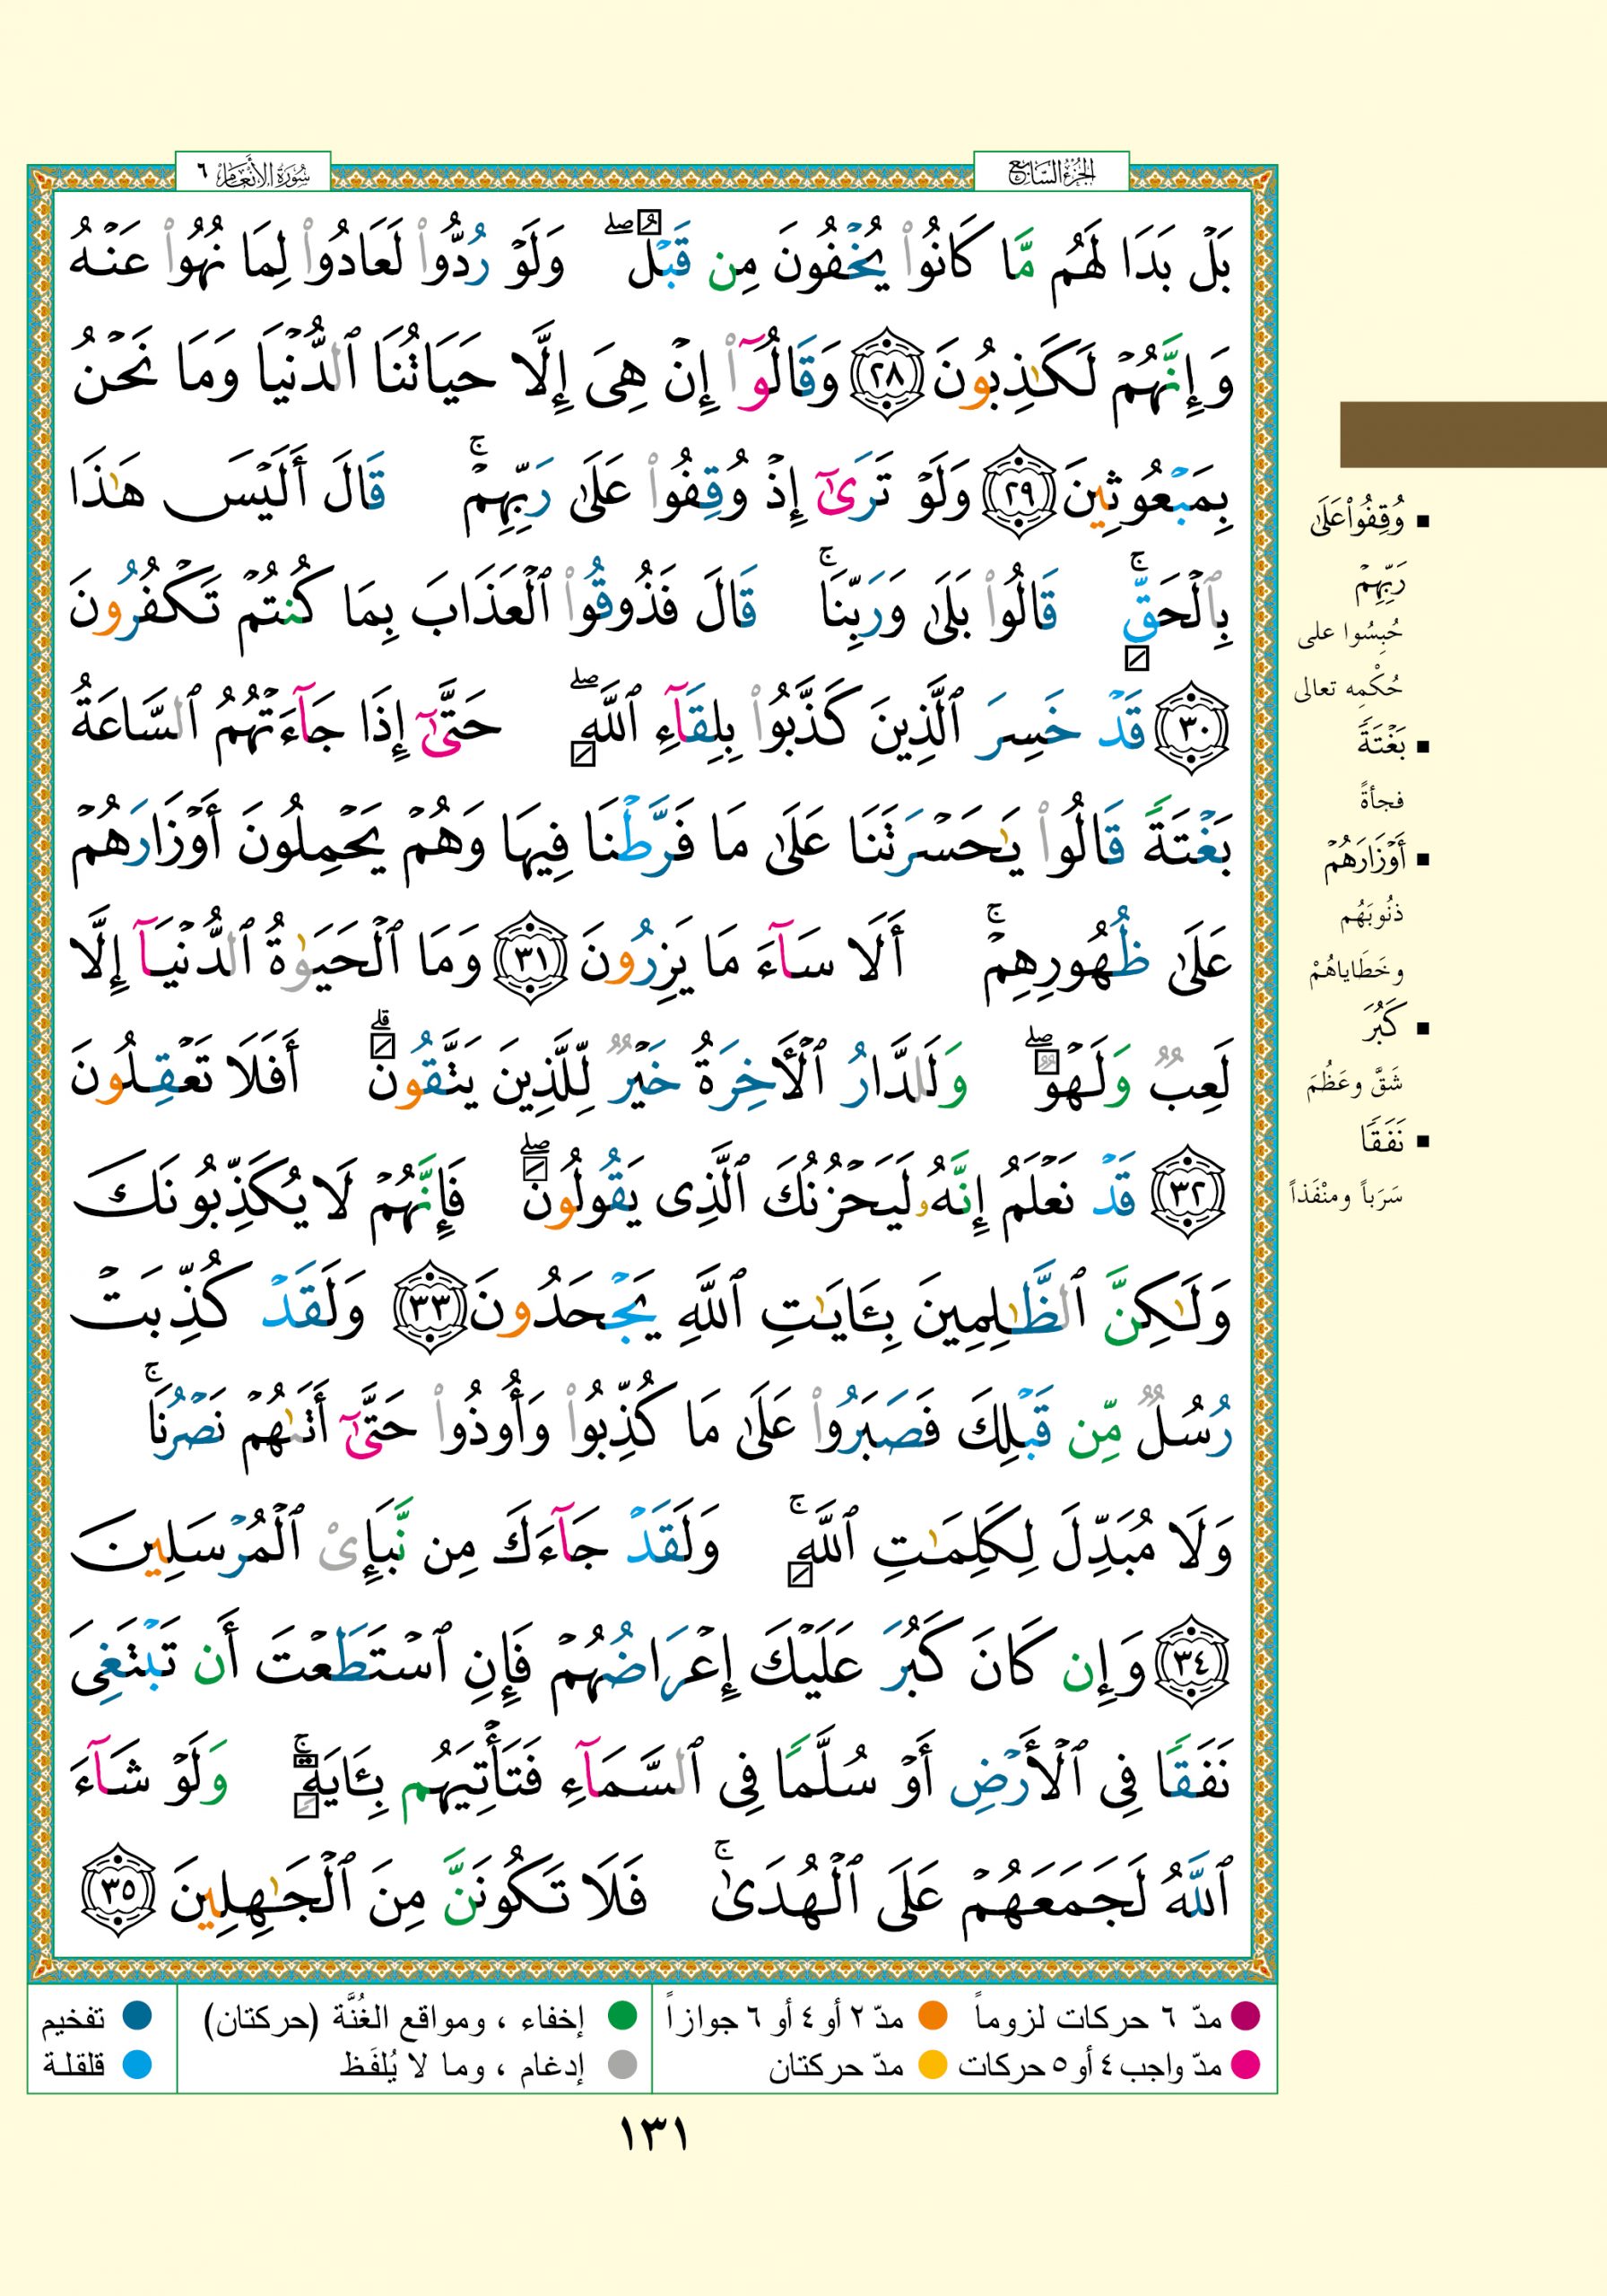 الجزء السابع
سورة الأنعام ٦
بَلْ بَدَا لَهُم مَّا كَانُوا۟ يُخْفُونَ مِن قَبْلُ ۖ وَلَوْ رُدُّوا۟ لَعَادُوا۟ لِمَا نُهُوا۟ عَنْهُ
وَإِنَّهُمْ لَكَـٰذِبُونَ ٢٨ وَقَالُوٓا۟ إِنْ هِىَ إِلَّا حَيَاتُنَا ٱلدُّنْيَا وَمَا نَحْنُ
بِمَبْعُوثِينَ ٢٩ وَلَوْ تَرَىٰٓ إِذْ وُقِفُوا۟ عَلَىٰ رَبِّهِمْ ۚ قَالَ أَلَيْسَ هَـٰذَا
بِٱلْحَقِّ ۚ قَالُوا۟ بَلَىٰ وَرَبِّنَا ۚ قَالَ فَذُوقُوا۟ ٱلْعَذَابَ بِمَا كُنتُمْ تَكْفُرُونَ
٣٠ قَدْ خَسِرَ ٱلَّذِينَ كَذَّبُوا۟ بِلِقَآءِ ٱللَّهِ ۖ حَتَّىٰٓ إِذَا جَآءَتْهُمُ ٱلسَّاعَةُ
بَغْتَةً قَالُوا۟ يَـٰحَسْرَتَنَا عَلَىٰ مَا فَرَّطْنَا فِيهَا وَهُمْ يَحْمِلُونَ أَوْزَارَهُمْ
عَلَىٰ ظُهُورِهِمْ ۚ أَلَا سَآءَ مَا يَزِرُونَ ٣١ وَمَا ٱلْحَيَوٰةُ ٱلدُّنْيَآ إِلَّا
لَعِبٌ وَلَهْوٌ ۖ وَلَلدَّارُ ٱلْـَٔاخِرَةُ خَيْرٌ لِّلَّذِينَ يَتَّقُونَ ۗ أَفَلَا تَعْقِلُونَ
٣٢ قَدْ نَعْلَمُ إِنَّهُۥ لَيَحْزُنُكَ ٱلَّذِى يَقُولُونَ ۖ فَإِنَّهُمْ لَا يُكَذِّبُونَكَ
وَلَـٰكِنَّ ٱلظَّـٰلِمِينَ بِـَٔايَـٰتِ ٱللَّهِ يَجْحَدُونَ ٣٣ وَلَقَدْ كُذِّبَتْ
رُسُلٌ مِّن قَبْلِكَ فَصَبَرُوا۟ عَلَىٰ مَا كُذِّبُوا۟ وَأُوذُوا۟ حَتَّىٰٓ أَتَىٰهُمْ نَصْرُنَا ۚ
وَلَا مُبَدِّلَ لِكَلِمَـٰتِ ٱللَّهِ ۚ وَلَقَدْ جَآءَكَ مِن نَّبَإِى۟ ٱلْمُرْسَلِينَ
٣٤ وَإِن كَانَ كَبُرَ عَلَيْكَ إِعْرَاضُهُمْ فَإِنِ ٱسْتَطَعْتَ أَن تَبْتَغِىَ
نَفَقًا فِى ٱلْأَرْضِ أَوْ سُلَّمًا فِى ٱلسَّمَآءِ فَتَأْتِيَهُم بِـَٔايَةٍ ۚ وَلَوْ شَآءَ
ٱللَّهُ لَجَمَعَهُمْ عَلَى ٱلْهُدَىٰ ۚ فَلَا تَكُونَنَّ مِنَ ٱلْجَـٰهِلِينَ ٣٥
▪ وُقِفُوا۟ عَلَىٰ
رَبِّهِمْ
حُبِسُوا على
حُكْمِه تعالى
▪ بَغْتَةً
فجأةً
▪ أَوْزَارَهُمْ
ذنُوبَهُم
وخَطَاياهُمْ
▪ كَبُرَ
شَقَّ وعَظُمَ
▪ نَفَقًا
سَرَباً ومنْفَذاً
مدّ ٦ حركات لزوماً
مدّ ٢ أو ٤ أو ٦ جوازاً
إخفاء ، ومواقع الغُنَّة (حركتان)
تفخيم
مدّ واجب ٤ أو ٥ حركات
مدّ حركتان
إدغام ، وما لا يُلفَظ
قلقلة
١٣١